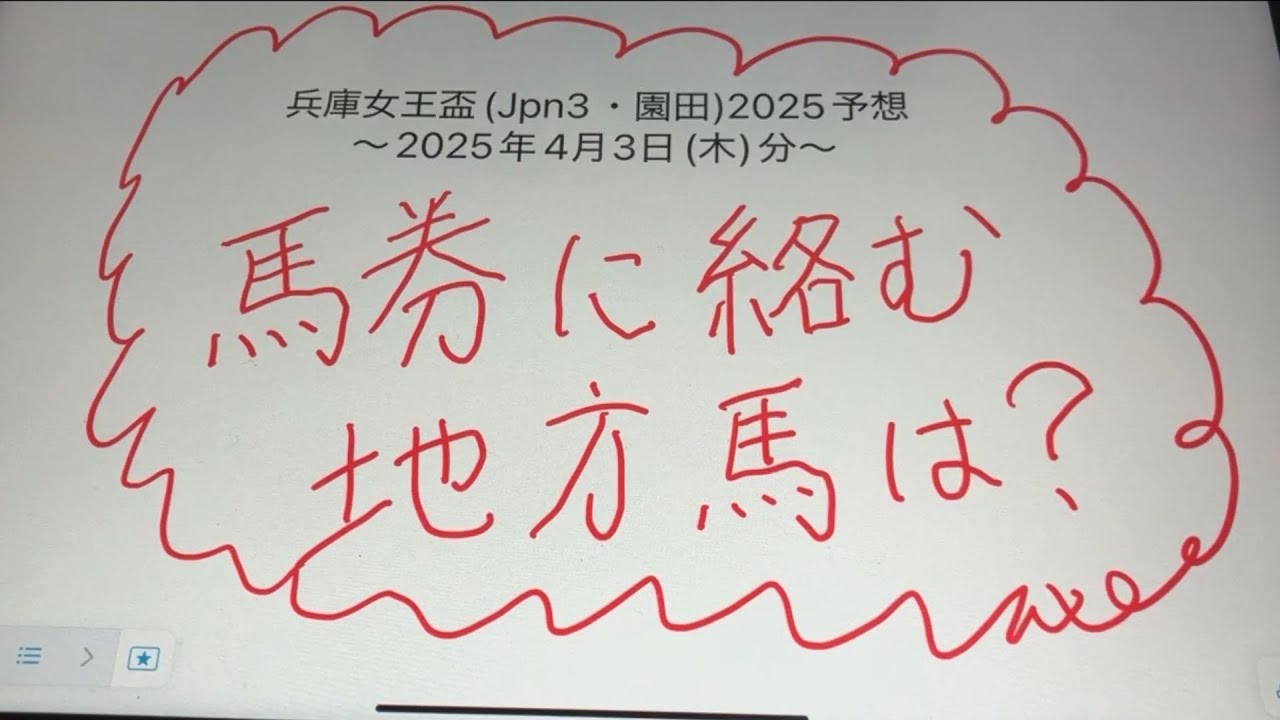 兵庫女王盃(Jpn3・園田)2025予想
〜2025年4月3日(木)分〜
馬券に絡む
地方馬は?